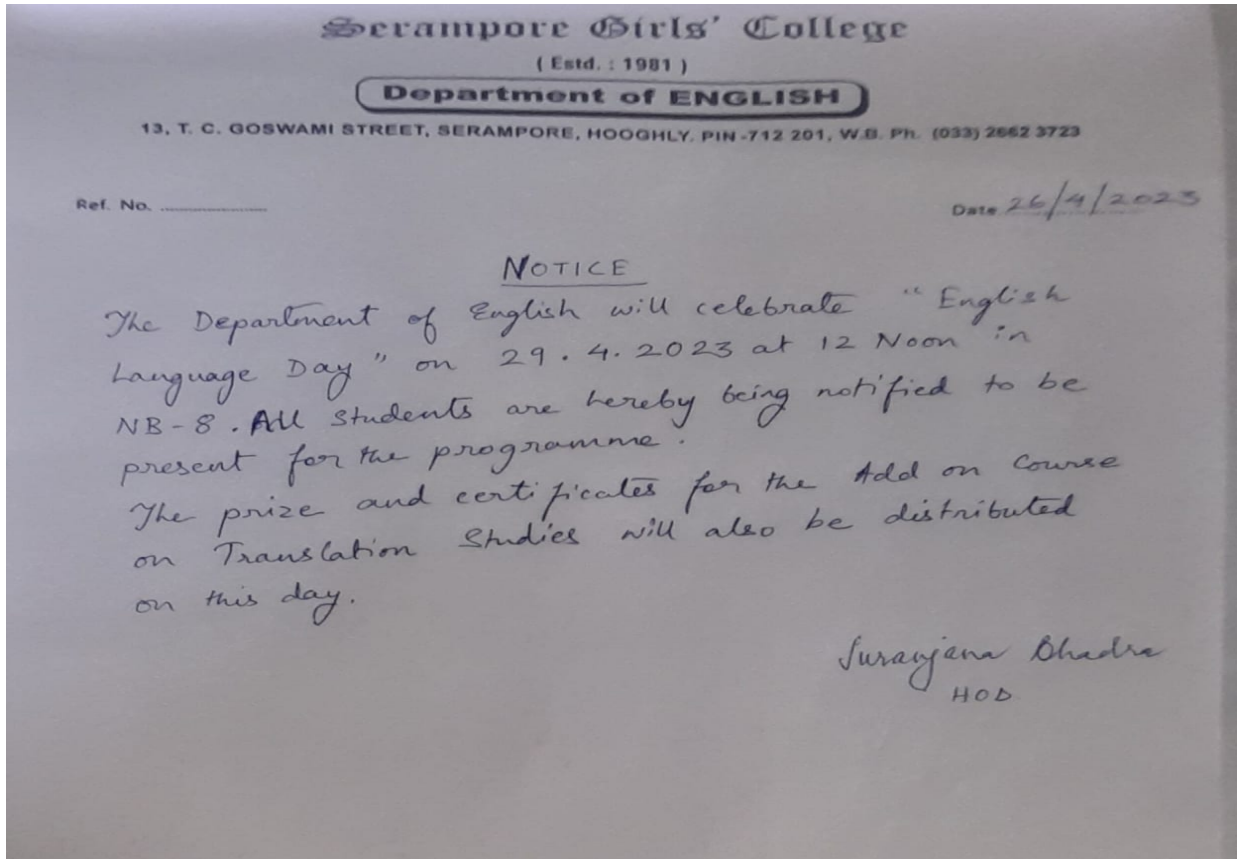 Serampore Girls' College
( Estd. : 1981 )
Department of ENGLISH
13, T. C. GOSWAMI STREET, SERAMPORE, HOOGHLY. PIN-712 201, W.B. Ph. (033) 2662 3723
Ref. No. ........................ Date 26/4/2023
NOTICE
The Department of English will celebrate "English
Language Day" on 29.4.2023 at 12 Noon in
NB-8. All students are hereby being notified to be
present for the programme.
The prize and certificates for the Add on Course
on Translation Studies will also be distributed
on this day.
Suranjana Bhadra
HOD